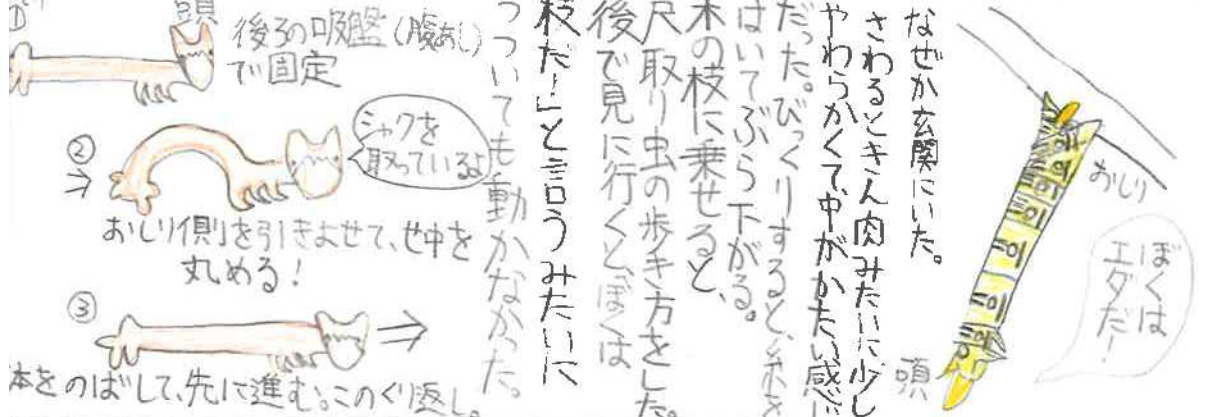 なぜか玄関にいた。
さわるときん肉みたいに少し
やわらかくて、中がかたい感じ
だった。びっくりすると、糸を
はいてぶら下がる。
木の枝に乗せると、
尺取り虫の歩き方をした。
後で見に行くと、「ぼくは
枝だ!」と言うみたいに
つついても動かなかった。
おしり
ぼくは
エダだ!
頭
①
頭
後ろの吸盤(腹あし)
で固定
②
シャクを
取っているよ
おしり側を引きよせて、せ中を
丸める!
③
体をのばして、先に進む。このくり返し。